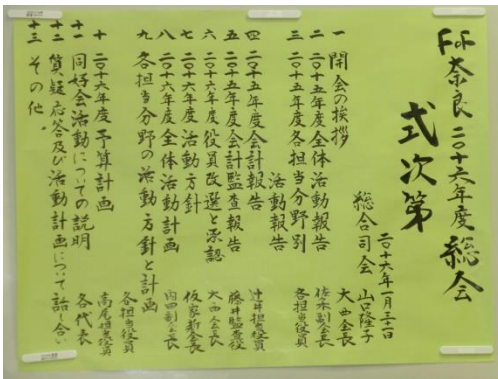 FoF奈良 二〇十六年度 総会
式次第
二〇十六年一月三十一日
総合司会 山宮隆子
一 開会の挨拶 大西会長
二 二〇十五年度全体活動報告 佐木副会長
三 二〇十五年度各担当分野別活動報告 各担当役員
四 二〇十五年度会計報告 辻井担当役員
五 二〇十五年度会計監査報告 藤井監査役
六 二〇十六年度役員改選と承認 大西会長
七 二〇十六年度活動方針 仮家新会長
八 二〇十六年度全体活動計画 内田副会長
九 各担当分野の活動方針と計画 各担当役員
十 二〇十六年度予算計画 高尾担当役員
十一 同好会活動についての説明 各代表
十二 質疑応答及び活動計画について話し合い
十三 その他